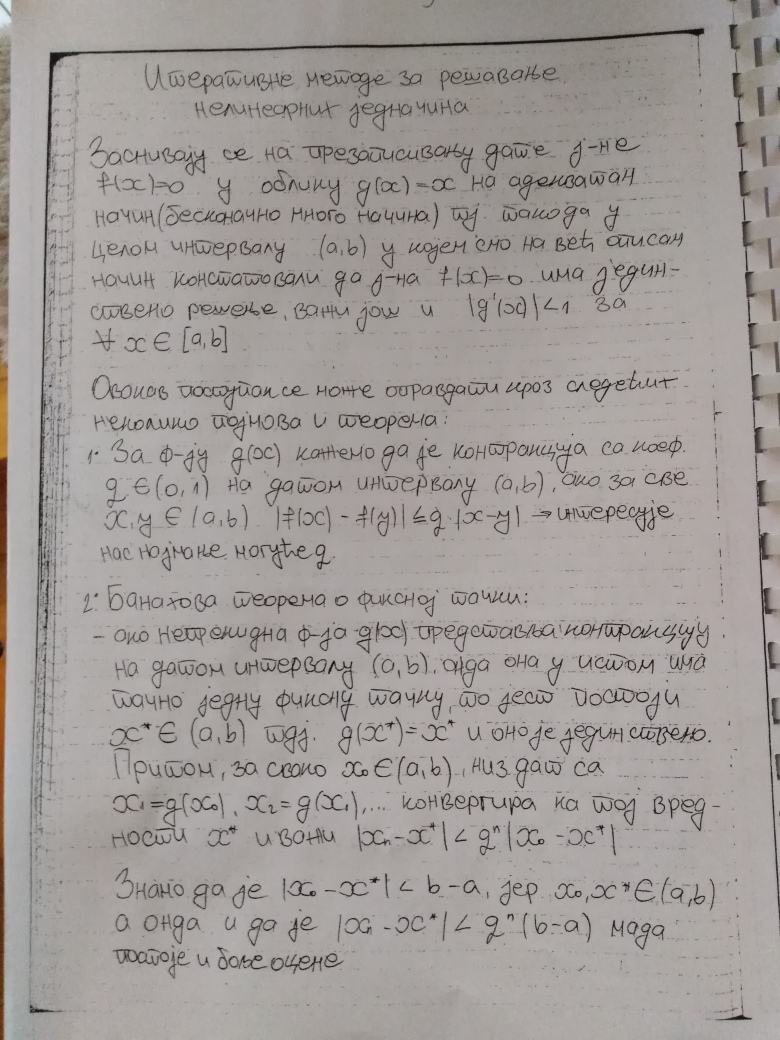 Итеративне методе за решавање
нелинеарних једначина
Заснивају се на презаписивању дате ј-не
f(x)=0 у облику g(x)=x на адекватан
начин (бесконачно много начина) тј. тако да у
целом интервалу (a,b) у којем смо на већ описан
начин констатовали да ј-на f(x)=0 има једин-
ствено решење, важи још и |g'(x)|<1 за
∀ x ∈ [a,b]
Овакав поступак се може оправдати кроз следећих
неколико појмова и теорема:
1° За ф-ју g(x) кажемо да је контракција са коеф.
q ∈ (0,1) на датом интервалу (a,b), ако за све
x,y ∈ (a,b) |f(x) - f(y)| ≤ q·|x-y| → интересује
нас најмање могуће q.
2° Банахова теорема о фиксној тачки:
- ако непрекидна ф-ја g(x) представља контракцију
на датом интервалу (a,b), онда она у истом има
тачно једну фиксну тачку, то јест постоји
x* ∈ (a,b) тдј. g(x*)=x* и оно је јединствено.
Притом, за свако x₀ ∈ (a,b), низ дат са
x₁=g(x₀), x₂=g(x₁),... конвергира ка тој вред-
ности x* и важи |xₙ-x*| < qⁿ |x₀ - x*|
Знамо да је |x₀ - x*| < b-a, јер x₀, x* ∈ (a,b)
а онда и да је |xᵢ - x*| < qⁿ (b-a) мада
постоје и боље оцене